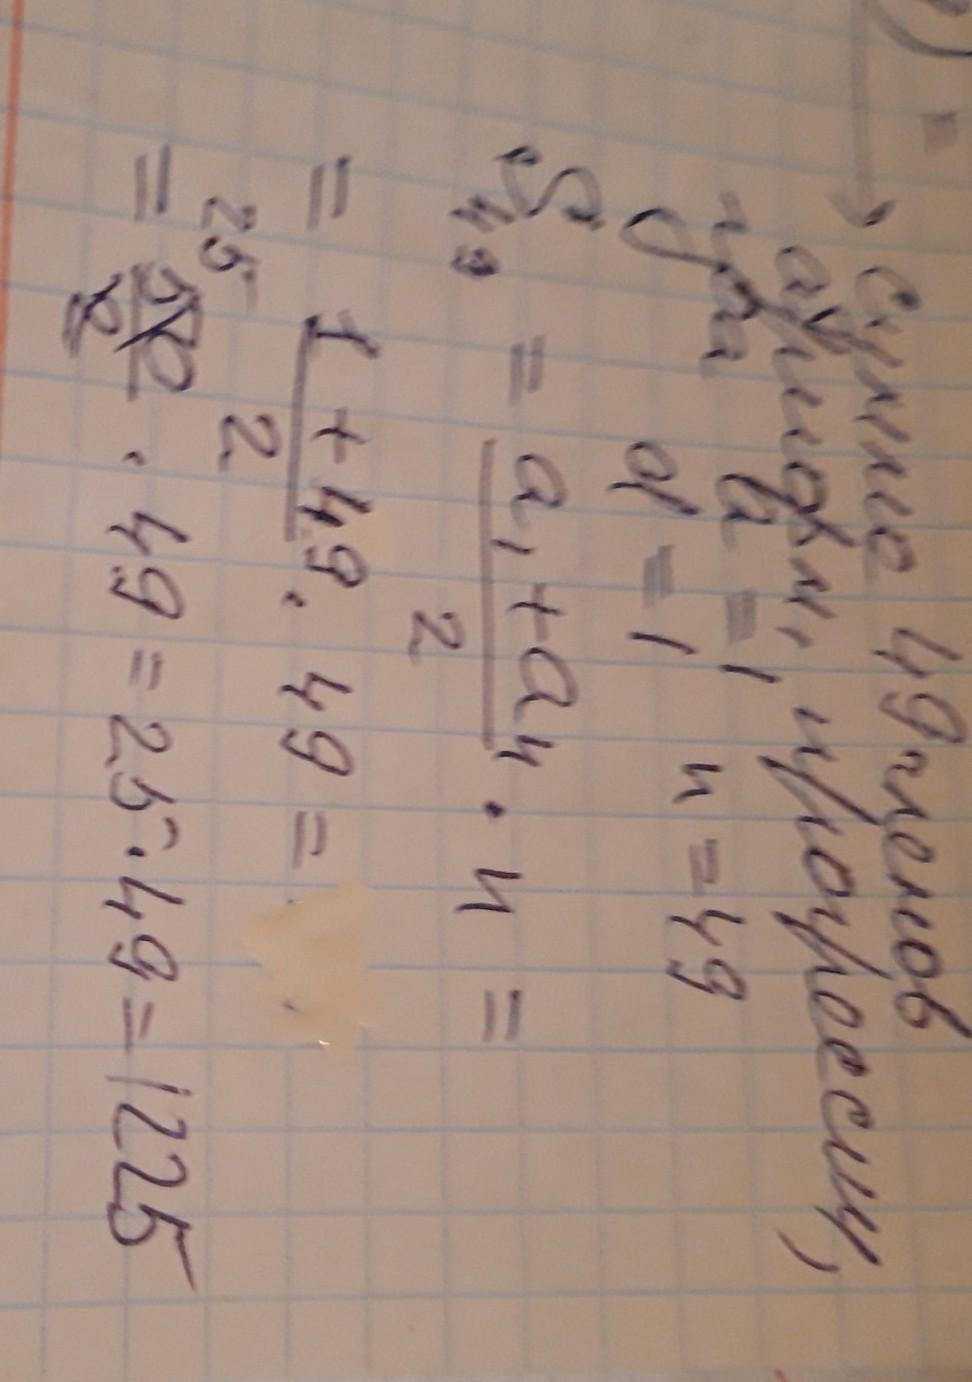 → сумма 49 членов
арифм, прогрессии,
где a = 1 n = 49
d = 1
S₄₉ = (a₁ + aₙ)/2 · n =
= (1 + 49)/2 · 49 =
= 50/2 · 49 = 25 · 49 = 1225
25